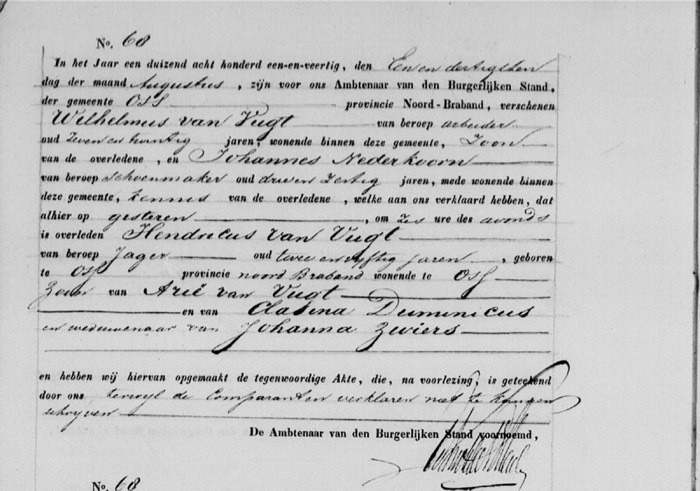 No. 68
In het Jaar een duizend acht honderd een-en-veertig, den Een en dertigsten
dag der maand Augustus, zijn voor ons Ambtenaar van den Burgerlijken Stand,
der gemeente Oss provincie Noord-Braband, verschenen
Wilhelmus van Vugt van beroep arbeider
oud Zeven en twintig jaren, wonende binnen deze gemeente, Zoon
van de overledene, en Johannes Nederkoorn
van beroep schoenmaker oud drie en Zestig jaren, mede wonende binnen
deze gemeente, kennis van de overledene, welke aan ons verklaard hebben, dat
alhier op gisteren, om Zes ure des avonds
is overleden Hendricus van Vugt
van beroep Jager oud twee en vyftig jaren, geboren
te Oss provincie noord Braband wonende te Oss
Zoon van Arie van Vugt
en van Clasina Duminicus
en weduwenaar van Johanna Zwiers
en hebben wij hiervan opgemaakt de tegenwoordige Akte, die, na voorlezing, is geteekend
door ons terwyl de Comparanten verklaren niet te kunnen
schryven
De Ambtenaar van den Burgerlijken Stand voornoemd,
No. 68